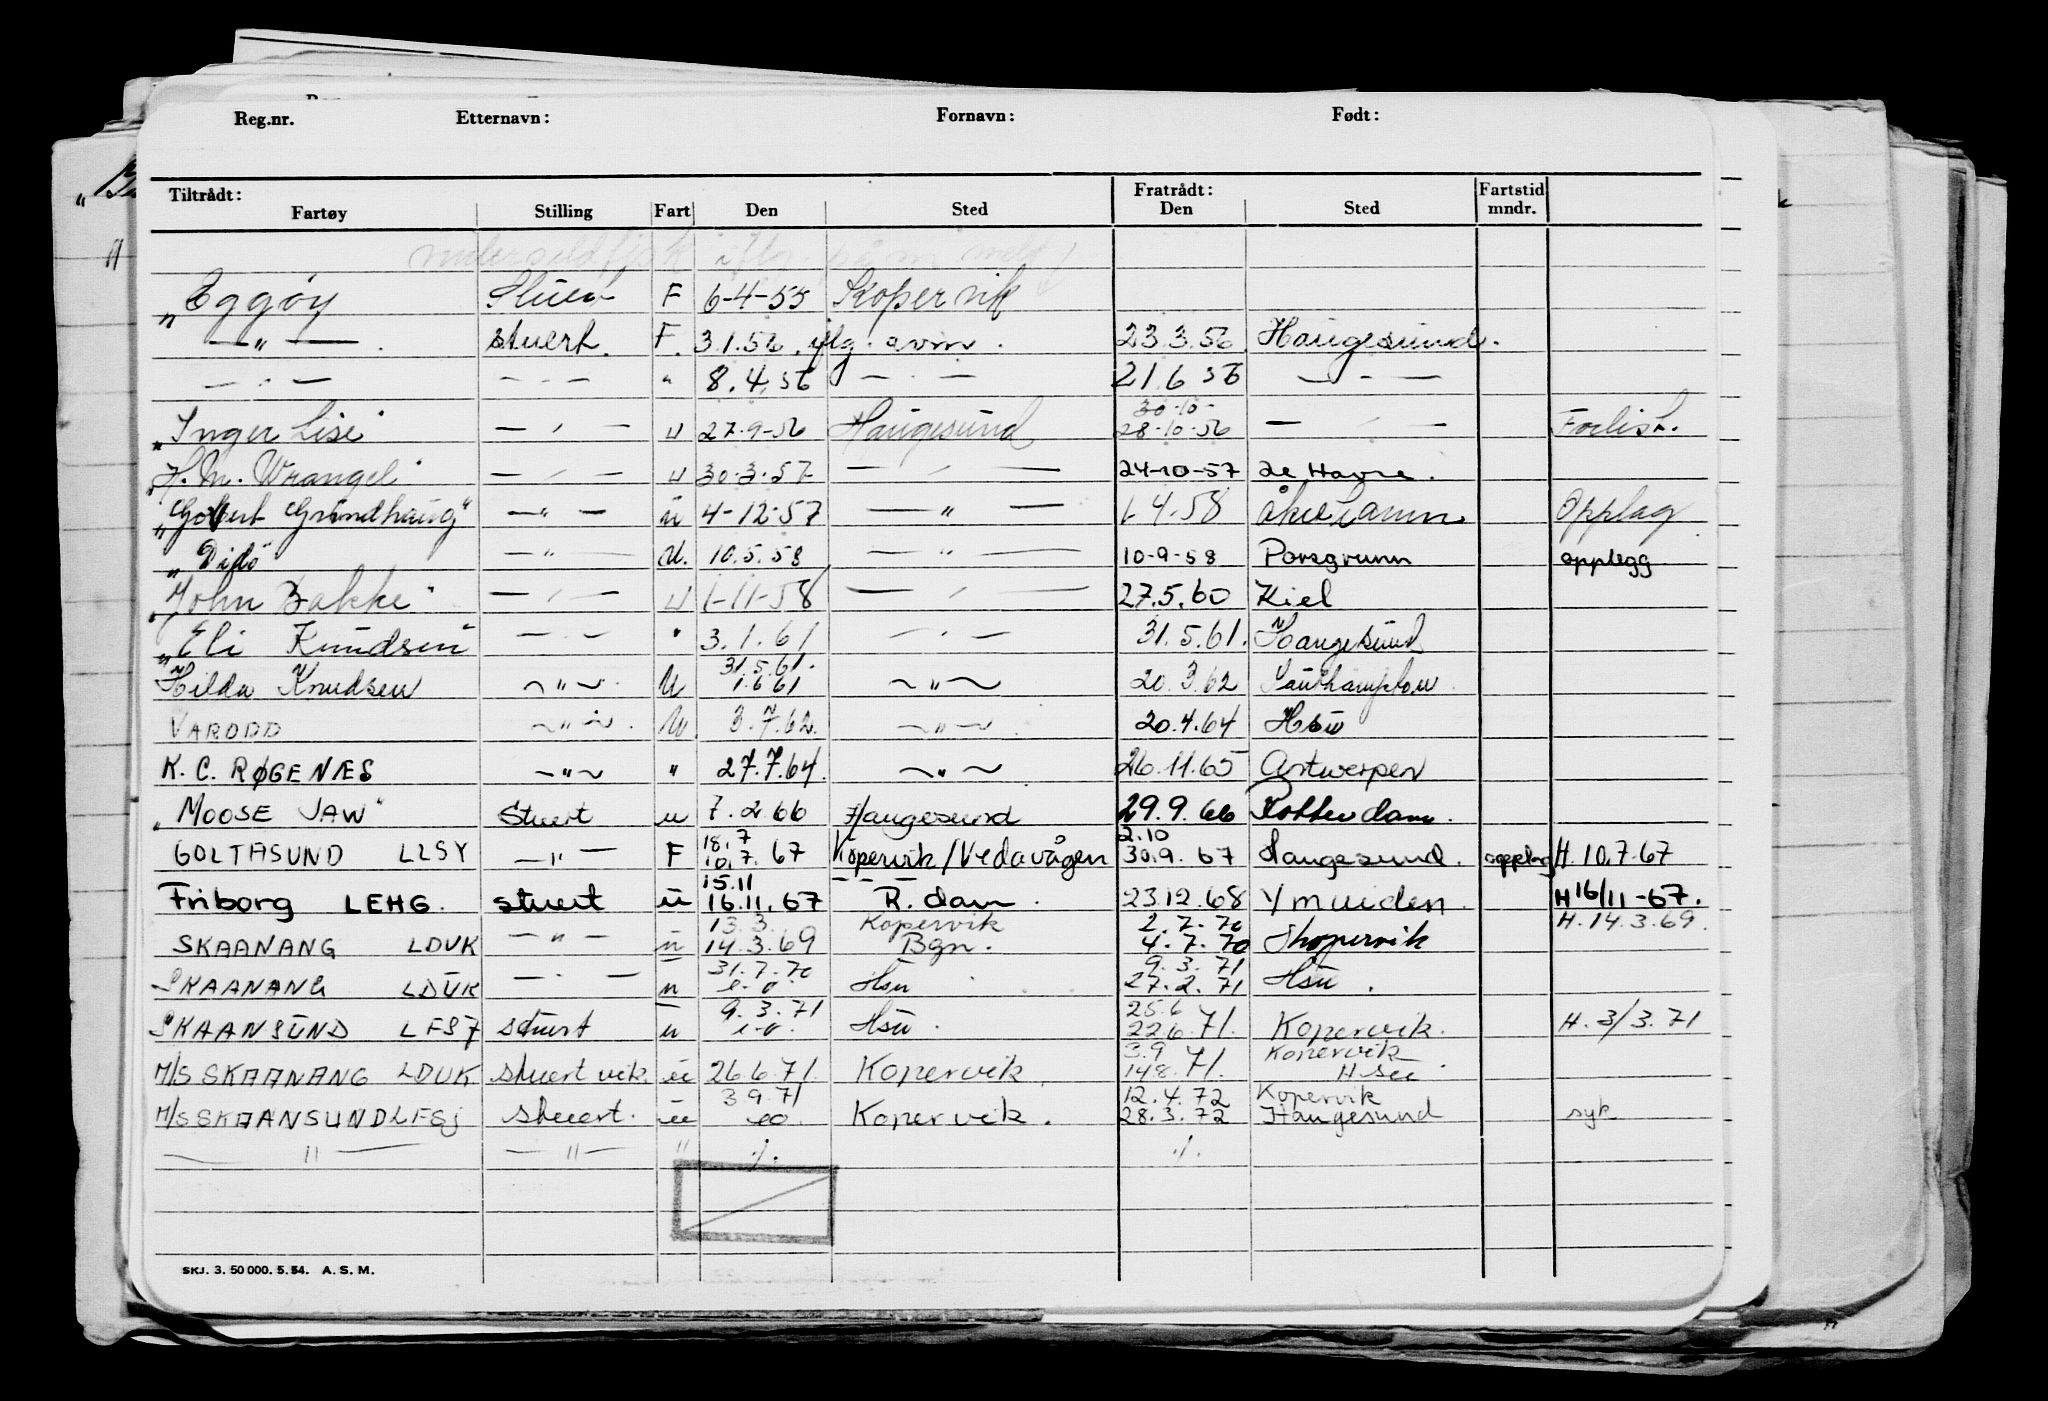 Reg.nr. Etternavn: Fornavn: Født:
Tiltrådt: Fratrådt: Fartstid mndr.
Fartøy Stilling Fart Den Sted Den Sted
iflg
"Eggøy" F 6-4-55 Kopervik
— " — . stuert. F. 3.1.56. iflg. avm. 23.3.56. Haugesund.
— " — — " — " 8.4.56 — " — 21.6.56 — " —
30-10-
"Inger Lise" — " — u 27-9-56 Haugesund 28-10-56 — " — Forlist.
"H. M. Wrangel" — " — u 30-3-57 — " — 24-10-57 Le Havre.
"Gobert Grindhaug" — " — u 4-12-57 — " — 1.4.58 Åkrehamn Opplag
"Dido" — " — u. 10.5.58 — " — 10-9-58 Porsgrunn opplegg
"John Bakke" — " — u 1-11-58 — " — 27.5.60 Kiel
"Eli Knudsen" — " — " 3.1.61 — " — 31.5.61. Haugesund
31.5.61.
Hilda Knudsen — " — . U 1.6.61 — " — 20.3.62 Southampton.
VARODD — " — . U. 3.7.62. — " — 20.4.64 Hsu
K. C. RØGENÆS — " — " 27.7.64. — " — 26.11.65 Antwerpen
"MOOSE JAW" Stuert u 7.2.66 Haugesund 29.9.66 Rotterdam.
18.7 2.10
GOLTASUND LLSY — " — F 10.7.67 Kopervik/Vedavågen 30.9.67 Haugesund. opplag H. 10.7.67
15.11
Friborg LEHG. stuert u 16.11.67 R.dam. 23.12.68 Ymuiden. H 16/11-67.
13.3. Kopervik 2.7.70 H. 14.3.69.
SKAANANG LDUK — " — u 14.3.69 Bgn. 4.7.70 Kopervik
31.7.70 9.3.71
SKAANANG LDUK — " — u e.o. Hsu 27.2.71 Hsu.
9.3.71 25.6
SKAANSUND LFSJ stuert u e.o. Hsu. 22.6.71. Kopervik. H. 3/3.71
3.9 Kopervik
M/S SKAANANG LDUK stuert vik. u 26.6.71. Kopervik. 14.8.71. H.su
3.9.71 12.4.72 Kopervik
M/S SKAANSUND LFSj stuert. u eo. Kopervik. 28.3.72 Haugesund syk
— " — — " — " ./. ./.
SKJ. 3. 50 000. 5. 54. A. S. M.